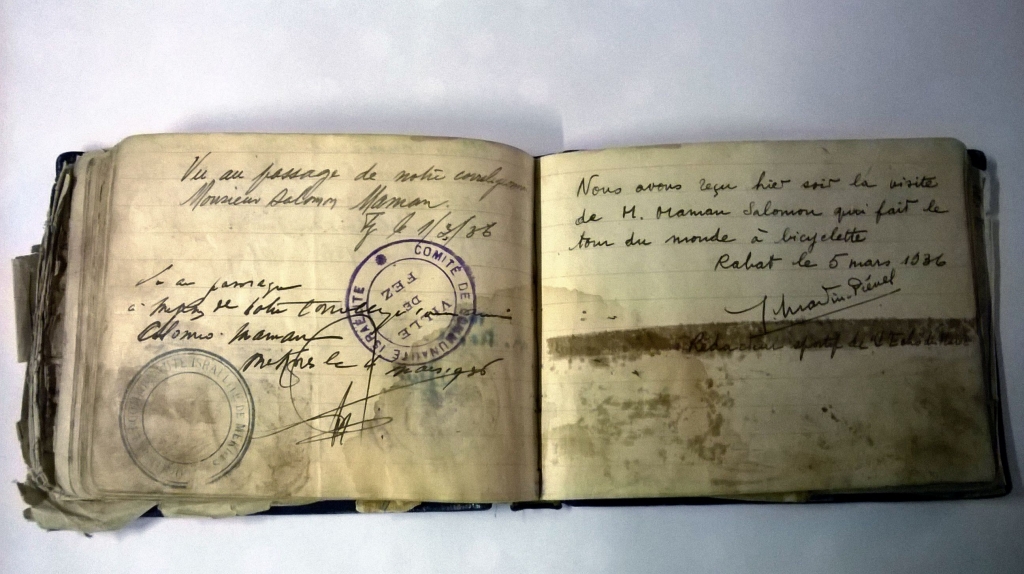 Vu au passage de notre
Monsieur Salomon Maman.
Fez le 1/3/36
COMITÉ DE COMMUNAUTÉ ISRAELITE
VILLE
DE
FEZ
Vu au passage
à de notre
Maman
le 4 mars 1936
ISRAELITE DE MEKNES
Nous avons reçu hier soir la visite
de M. Maman Salomon qui fait le
tour du monde à bicyclette
Rabat le 5 mars 1936
Rédacteur sportif de l'Echo du Maroc